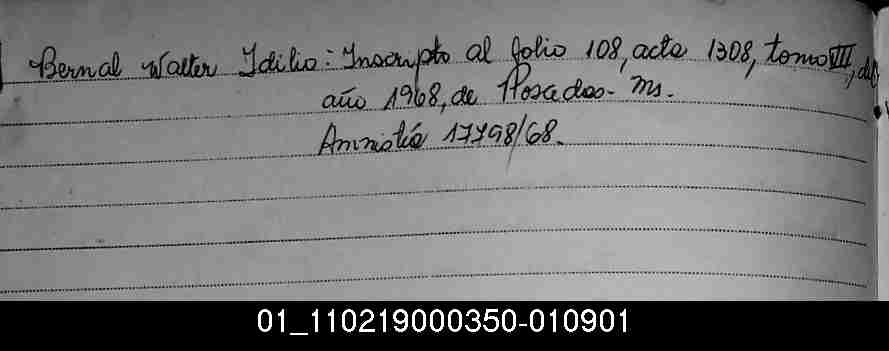 Bernal Walter Idilio: Inscripto al folio 108, acta 1308, tomo VII, del
año 1968, de Posadas- Ms.
Amnistía 17798/68.
01_110219000350-010901